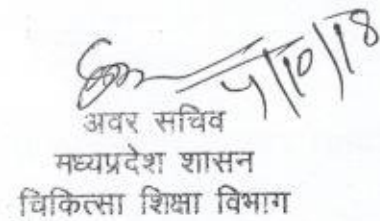 4/10/18
अवर सचिव
मध्यप्रदेश शासन
चिकित्सा शिक्षा विभाग